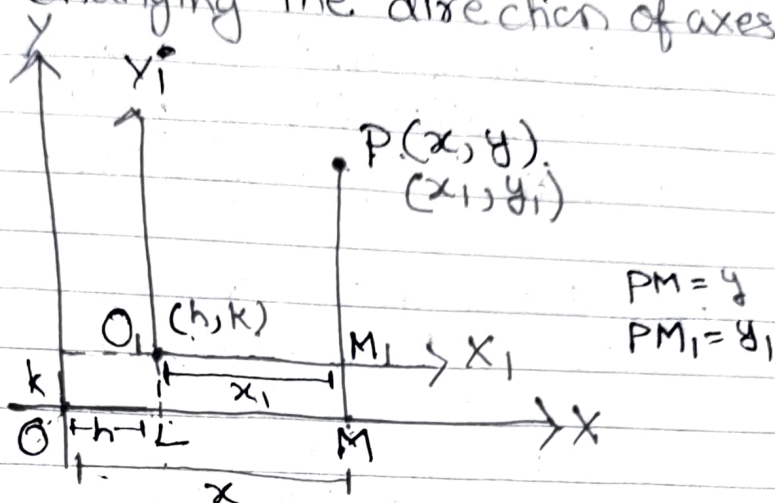 changing the direction of axes
Y
Y₁
P.(x, y).
(x₁, y₁)
PM = y
PM₁ = y₁
O₁ (h, k)
M₁ X₁
x₁
k
O h L M X
x